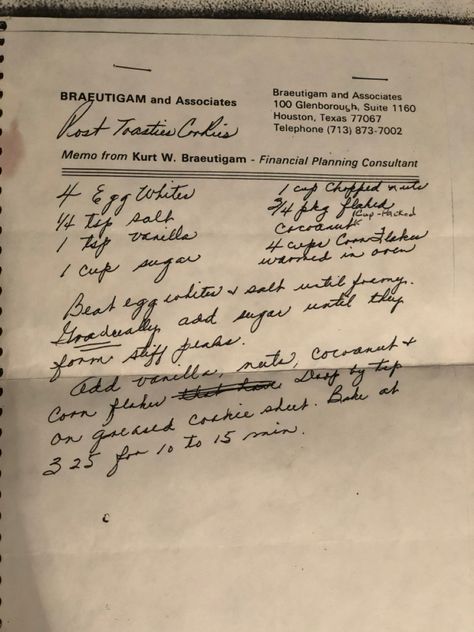 BRAEUTIGAM and Associates
Braeutigam and Associates
100 Glenborough, Suite 1160
Houston, Texas 77067
Telephone (713) 873-7002
Post Toasties Cookies
Memo from Kurt W. Braeutigam - Financial Planning Consultant
4 Egg Whites
1/4 tsp salt
1 tsp vanilla
1 cup sugar
1 cup chopped nuts
3/4 pkg flaked
Cup-Packed
cocoanut
4 cups Corn Flakes
warmed in oven
Beat egg whites & salt until foamy.
Gradually add sugar until they
form stiff peaks.
Add vanilla, nuts, cocoanut &
corn flakes Drop by tsp
on greased cookie sheet. Bake at
325 for 10 to 15 min.